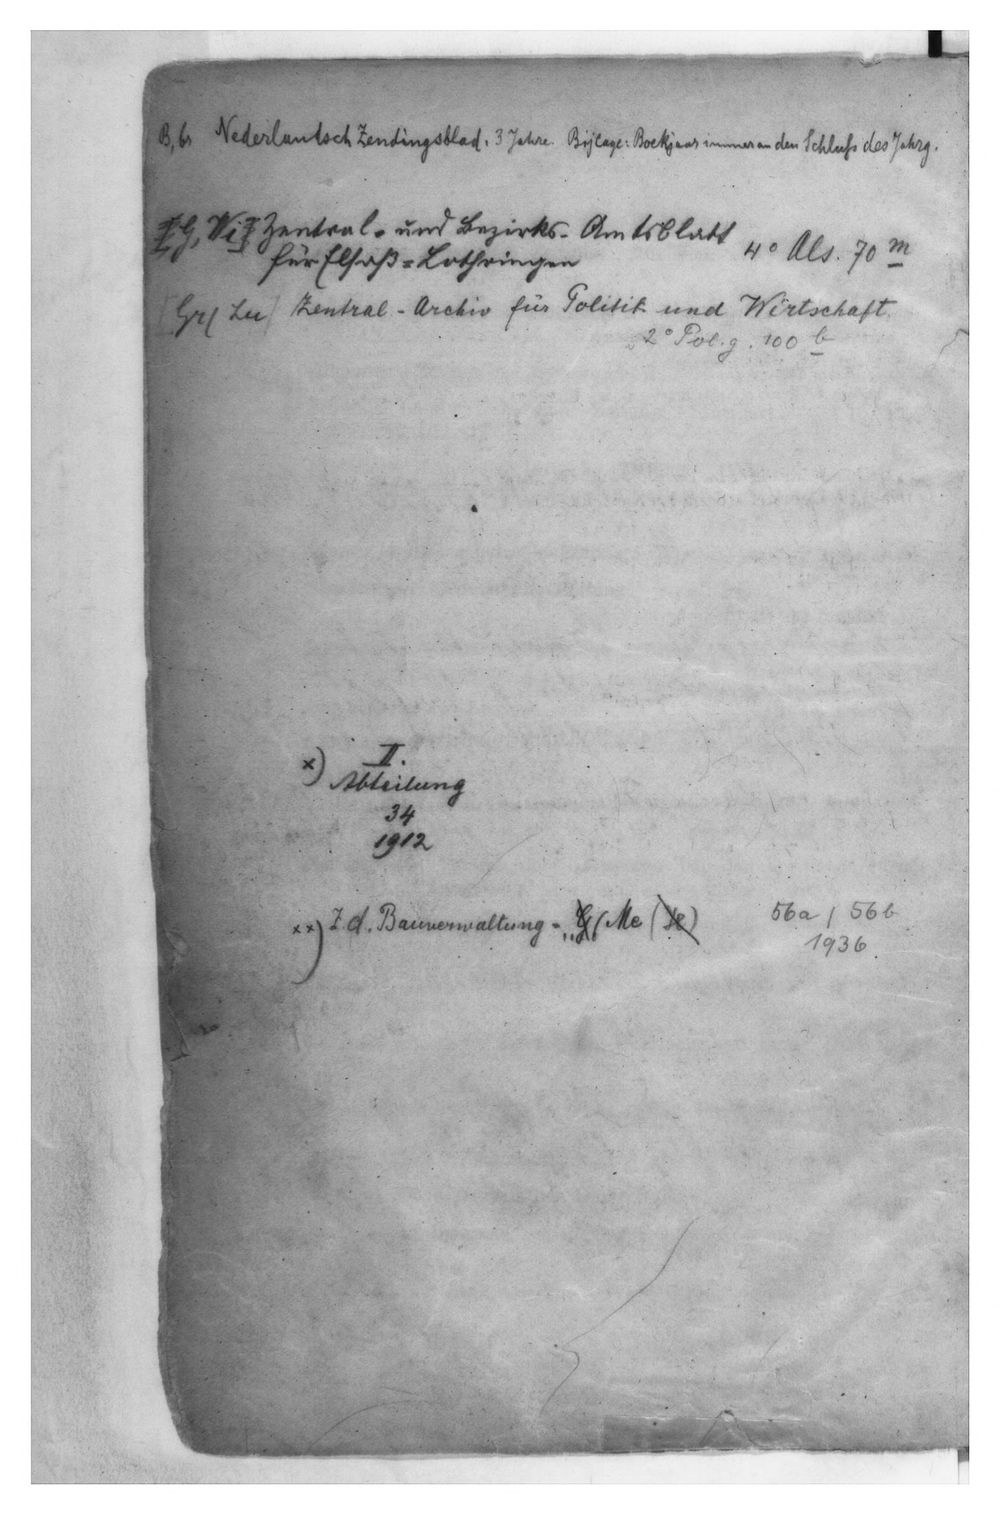 B, br Nederlantsch Zendingsblad. 3 Jahre. Bijlage: Boekjaar immer an den Schluß des Jahrg.
[G, Wi] Zentral- und Bezirks-Amtsblatt
für Elsaß-Lothringen 4° Als. 70 m
[Gr/ Lu] Zentral-Archiv für Politik und Wirtschaft.
2° Pol. g. 100 b
x) II.
Abteilung
34
1912
xx) Z. d. Bauverwaltung = G/ Me (Je) 56a / 56b
1936.